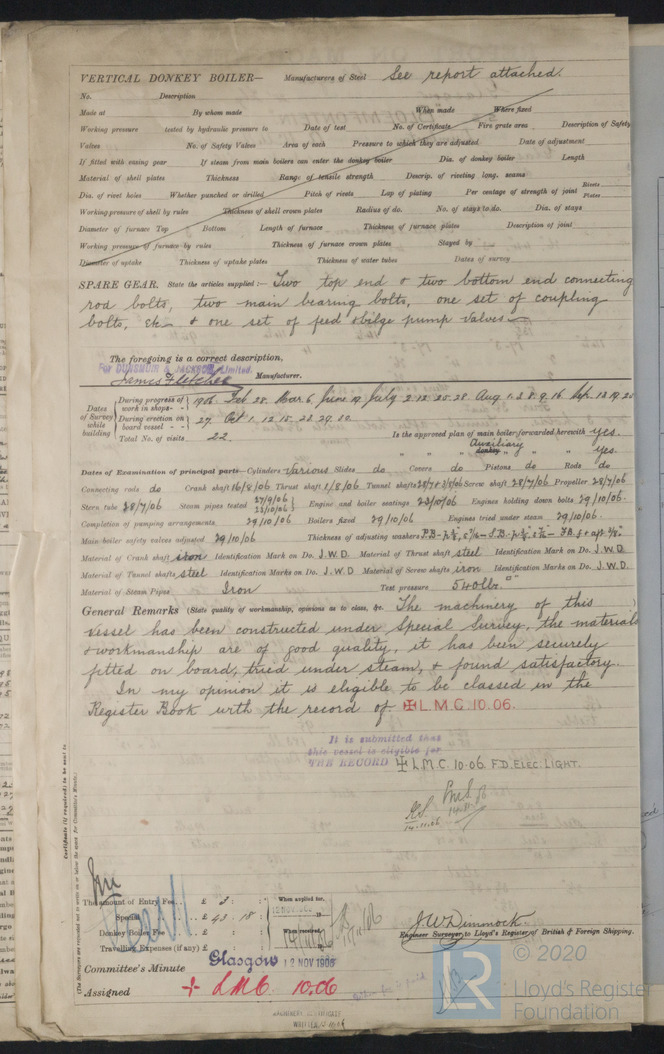 VERTICAL DONKEY BOILER— Manufacturers of Steel See report attached.
No. Description
Made at By whom made When made Where fixed
Working pressure tested by hydraulic pressure to Date of test No. of Certificate Fire grate area Description of Safety
Valves No. of Safety Valves Area of each Pressure to which they are adjusted Date of adjustment
If fitted with easing gear If steam from main boilers can enter the donkey boiler Dia. of donkey boiler Length
Material of shell plates Thickness Range of tensile strength Descrip. of riveting long. seams
Dia. of rivet holes Whether punched or drilled Pitch of rivets Lap of plating Per centage of strength of joint Rivets Plates
Working pressure of shell by rules Thickness of shell crown plates Radius of do. No. of stays to do. Dia. of stays
Diameter of furnace Top Bottom Length of furnace Thickness of furnace plates Description of joint
Working pressure of furnace by rules Thickness of furnace crown plates Stayed by
Diameter of uptake Thickness of uptake plates Thickness of water tubes Dates of survey
SPARE GEAR. State the articles supplied:— Two top end & two bottom end connecting
rod bolts, two main bearing bolts, one set of coupling
bolts, etc & one set of feed & bilge pump valves—
The foregoing is a correct description,
For DUNSMUIR & JACKSON, Limited.
James Fletcher Manufacturer.
Dates of Survey while building
During progress of work in shops - - 1906. Feb. 28. Mar. 6, June 19, July 2. 12. 25. 28. Aug. 1. 3. 8. 9. 16. Sep. 13. 19. 25
During erection on board vessel - - 27. Oct 1. 12. 15. 23. 29. 30.
Total No. of visits 22. Is the approved plan of main boiler forwarded herewith yes.
" " " Auxiliary donkey " " " yes.
Dates of Examination of principal parts—Cylinders Various Slides do Covers do Pistons do Rods do
Connecting rods do Crank shaft 16/8/06 Thrust shaft 1/8/06 Tunnel shafts Screw shaft 28/7/06 Propeller 28/7/06
Stern tube 28/7/06 Steam pipes tested 27/9/06 23/10/06 Engine and boiler seatings 23/10/06 Engines holding down bolts 29/10/06.
Completion of pumping arrangements 29/10/06 Boilers fixed 29/10/06 Engines tried under steam 29/10/06.
Main boiler safety valves adjusted 29/10/06 Thickness of adjusting washers
Material of Crank shaft iron Identification Mark on Do. J.W.D. Material of Thrust shaft steel Identification Mark on Do. J.W.D.
Material of Tunnel shafts steel Identification Marks on Do. J.W.D Material of Screw shafts iron Identification Marks on Do. J.W.D.
Material of Steam Pipes Iron Test pressure 540 lbs.
General Remarks (State quality of workmanship, opinions as to class, &c. The machinery of this
vessel has been constructed under Special Survey, the materials
& workmanship are of good quality, it has been securely
fitted on board, tried under steam, & found satisfactory.
In my opinion it is eligible to be classed in the
Register Book with the record of ✠ L.M.C. 10.06.
It is submitted that
this vessel is eligible for
THE RECORD ✠ L.M.C. 10.06. F.D. ELEC. LIGHT.
14.11.06
Certificate (if required) to be sent to
(The Surveyors are requested not to write on or below the space for Committee's Minute.)
The amount of Entry Fee.. £ 3 : When applied for,
Special .. £ 43 . 18 :
Donkey Boiler Fee .. £ When received,
Travelling Expenses (if any) £
J.W. Dimmock
Engineer Surveyor to Lloyd's Register of British & Foreign Shipping.
Committee's Minute Glasgow 12 NOV 1906
Assigned + LMC 10.06
MACHINERY CERTIFICATE
WRITTEN
© 2020
LR
Lloyd's Register
Foundation